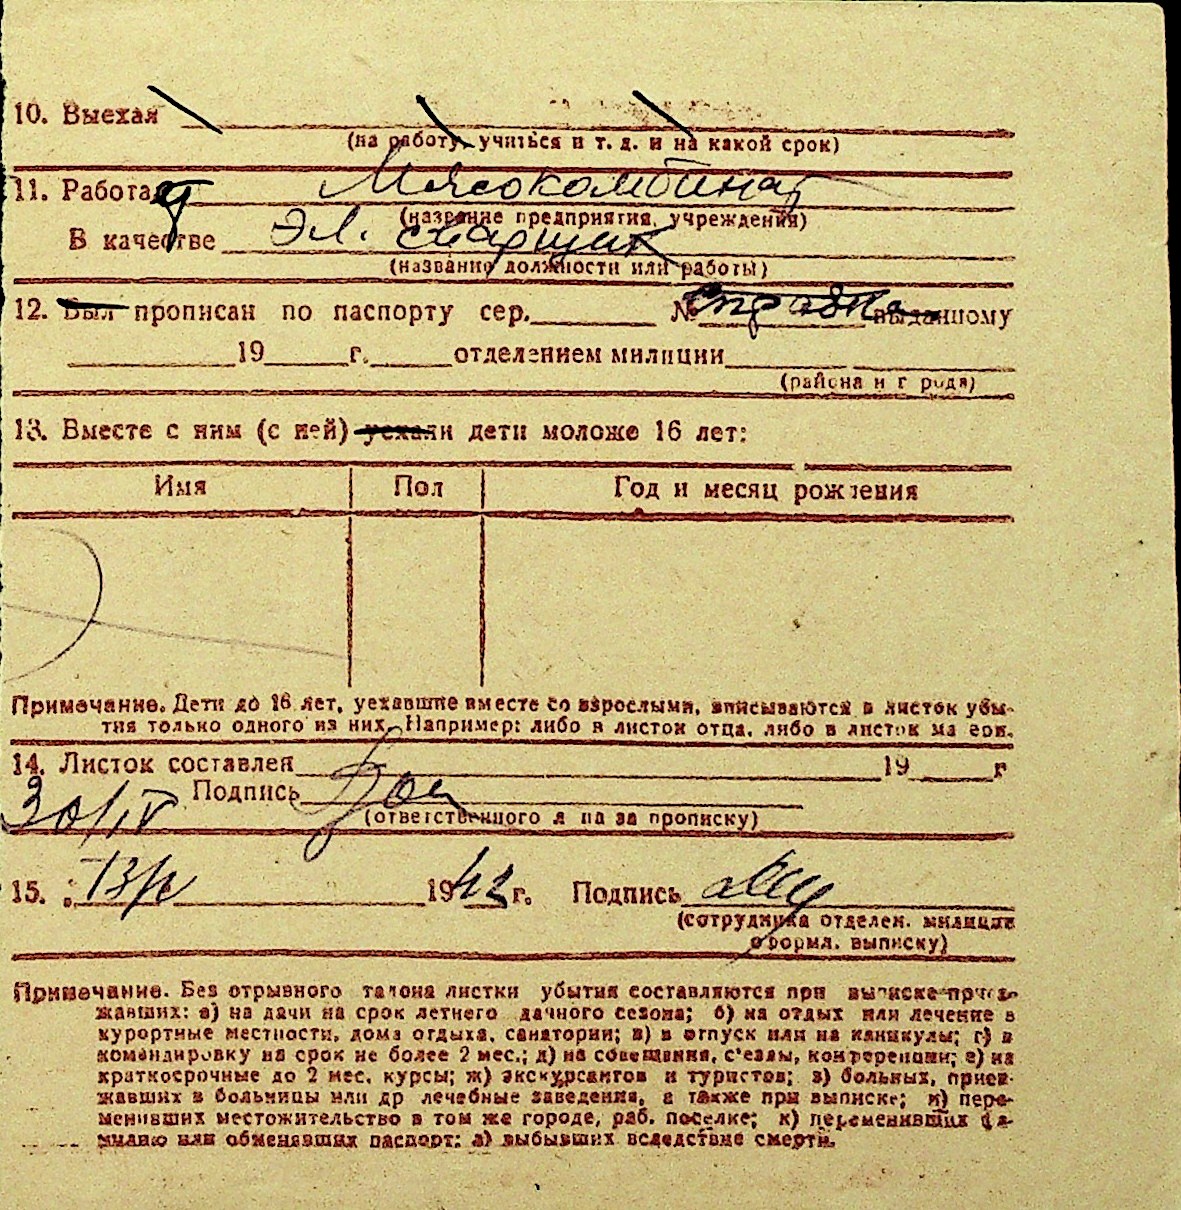 10. Выехал
(на работу, учиться и т. д. и на какой срок)
11. Работает Мясокомбинат
(название предприятия, учреждения)
В качестве Эл. сварщик
(название должности или работы)
12. Был прописан по паспорту сер. № справка выданному
19 г. отделением милиции
(района и города)
13. Вместе с ним (с ней) уехали дети моложе 16 лет:
Имя Пол Год и месяц рождения
Примечание. Дети до 16 лет, уехавшие вместе со взрослыми, вписываются в листок убы-
тия только одного из них. Например: либо в листок отца, либо в листок матери.
14. Листок составлен 19 г
30/IV Подпись
(ответственного лица за прописку)
15. 19 г. Подпись
(сотрудника отделен. милиции
оформл. выписку)
Примечание. Без отрывного талона листки убытия составляются при выписке приез-
жавших: а) на дачи на срок летнего дачного сезона; б) на отдых или лечение в
курортные местности, дома отдыха, санатории; в) в отпуск или на каникулы; г) в
командировку на срок не более 2 мес.; д) на совещания, с'езды, конференции; е) на
краткосрочные до 2 мес. курсы; ж) экскурсантов и туристов; з) больных, приез-
жавших в больницы или др лечебные заведения, а также при выписке; и) пере-
менивших местожительство в том же городе, раб. поселке; к) переменивших фа-
милию или обменявших паспорт; л) выбывших вследствие смерти.